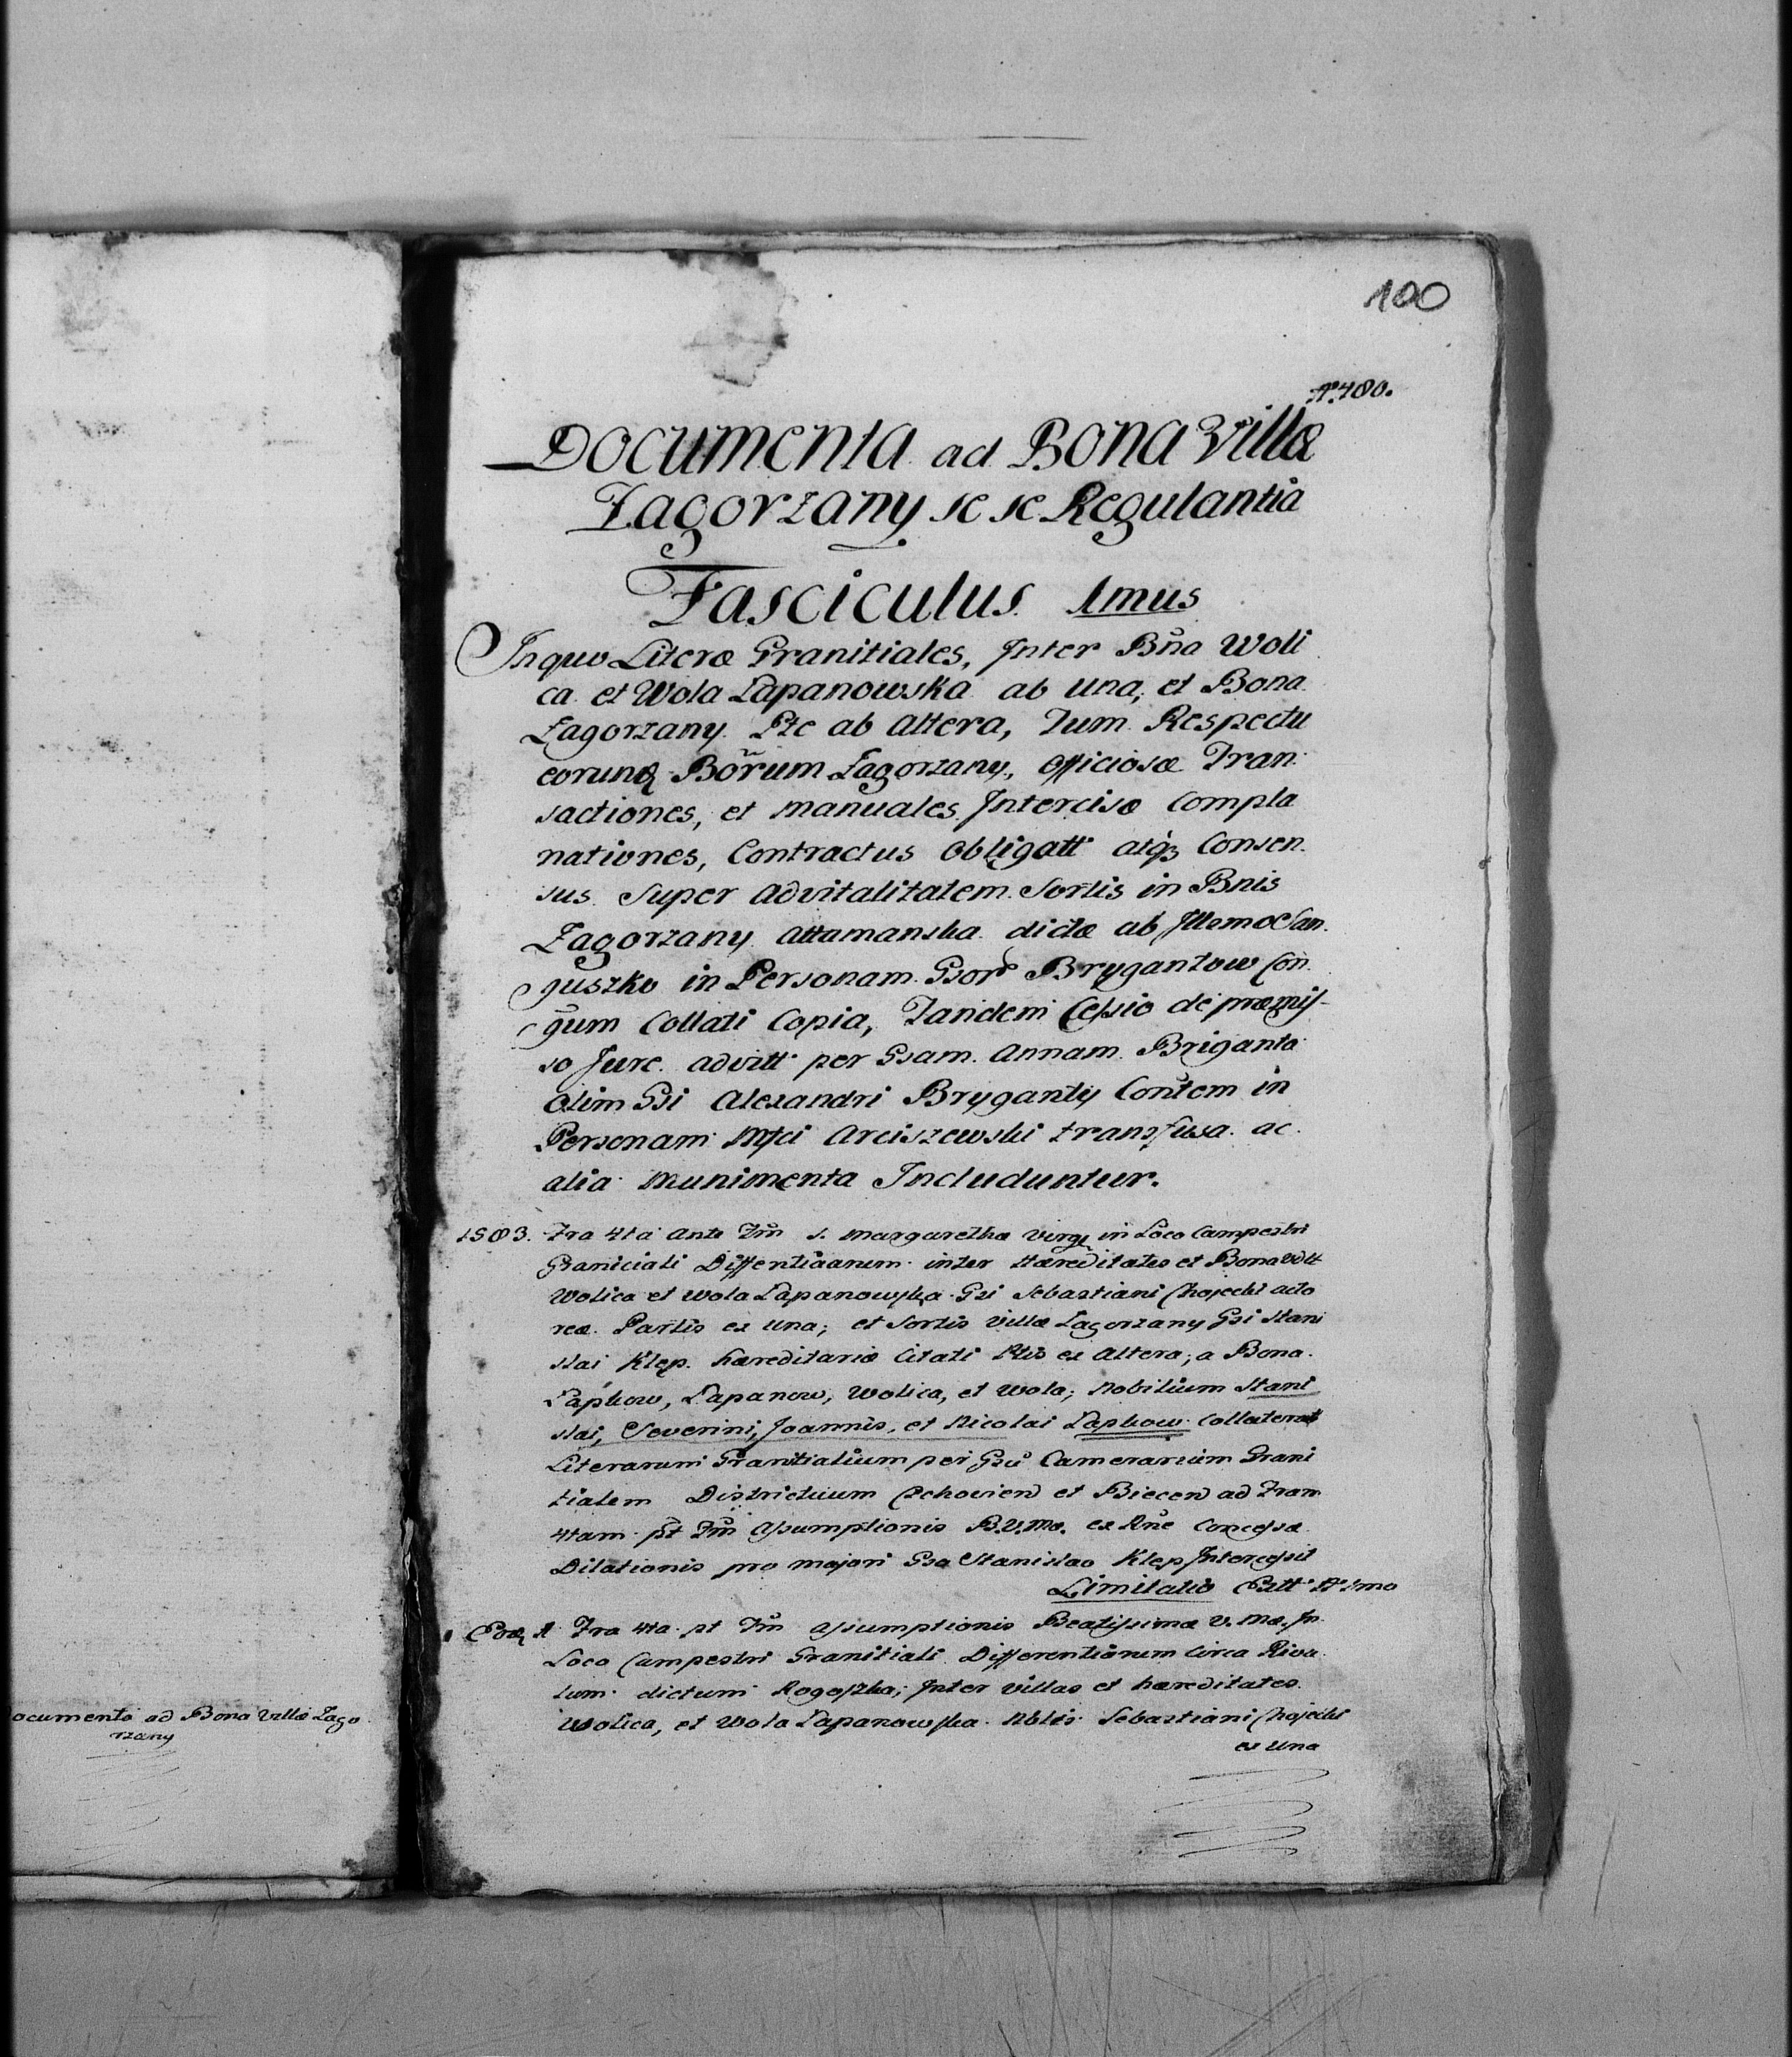 100
No 480.
Documenta ad Bona Villæ
Zagorzany se se Regulantia
Fasciculus 1mus
In quo Literæ Granitiales, Inter Bña Woli
ca et Wola Łapanowska ab una, et Bona
Zagorzany Pte ab altera, Tum Respectu
eorund Boñrum Zagorzany, officiosæ Tran
sactiones, et manuales Intercisæ compla
nationes, Contractus obligatt atq3 Consen
sus super advitalitatem Sortis in Bnis
Zagorzany Attamanska dictæ ab Illemo San
guszko in Personam Gsor Brygantow Con
gum Collati Copia, Tandem Cessio de præmis
so Jure advitt per Gsam Annam Briganta
olim Gsi Alexandri Bryganty Contem in
Personam Mfci Arciszewski transfusa ac
alia munimenta Includuntur.
1583. Fra 4ta ante Fm S. Margarethæ Virg in Loco Campestri
Graniciali Differentiarum inter Hæreditates et Bona Vill
Wolica et Wola Łapanowska Gsi Sebastiani Chojecki acto
reæ Partis ex una; et Sortis Villæ Zagorzany Gsi Stani
slai Klep hæreditariæ Citati Ptis ex altera; a Bona
Łapkow, Łapanow, Wolica, et Wola; Nobilium Stani
slai, Severini, Joannis, et Nicolai Łapkow Collaterat
Literarum Granitialium per Gsu Camerarium Grani
tialem Districtuum Czchovien et Biecen ad Fram
4tam pt Fm Assumptionis B.V.Mæ. ex Rne Concessæ
Dilationis pro majori Gso Stanislao Klep Intercessit
Limitatio Patt No 1mo
Eod A Fra 4ta pt Fm Assumptionis Beatissimæ V. Mæ. In
Loco Campestri Granitiali Differentiarum circa Rivu
lum dictum Rogoszka; Inter Villas et hæreditates
Wolica, et Wola Łapanowska Nblis Sebastiani Chojecki
ex una
ocumenta ad Bona Villæ Zago
rzany